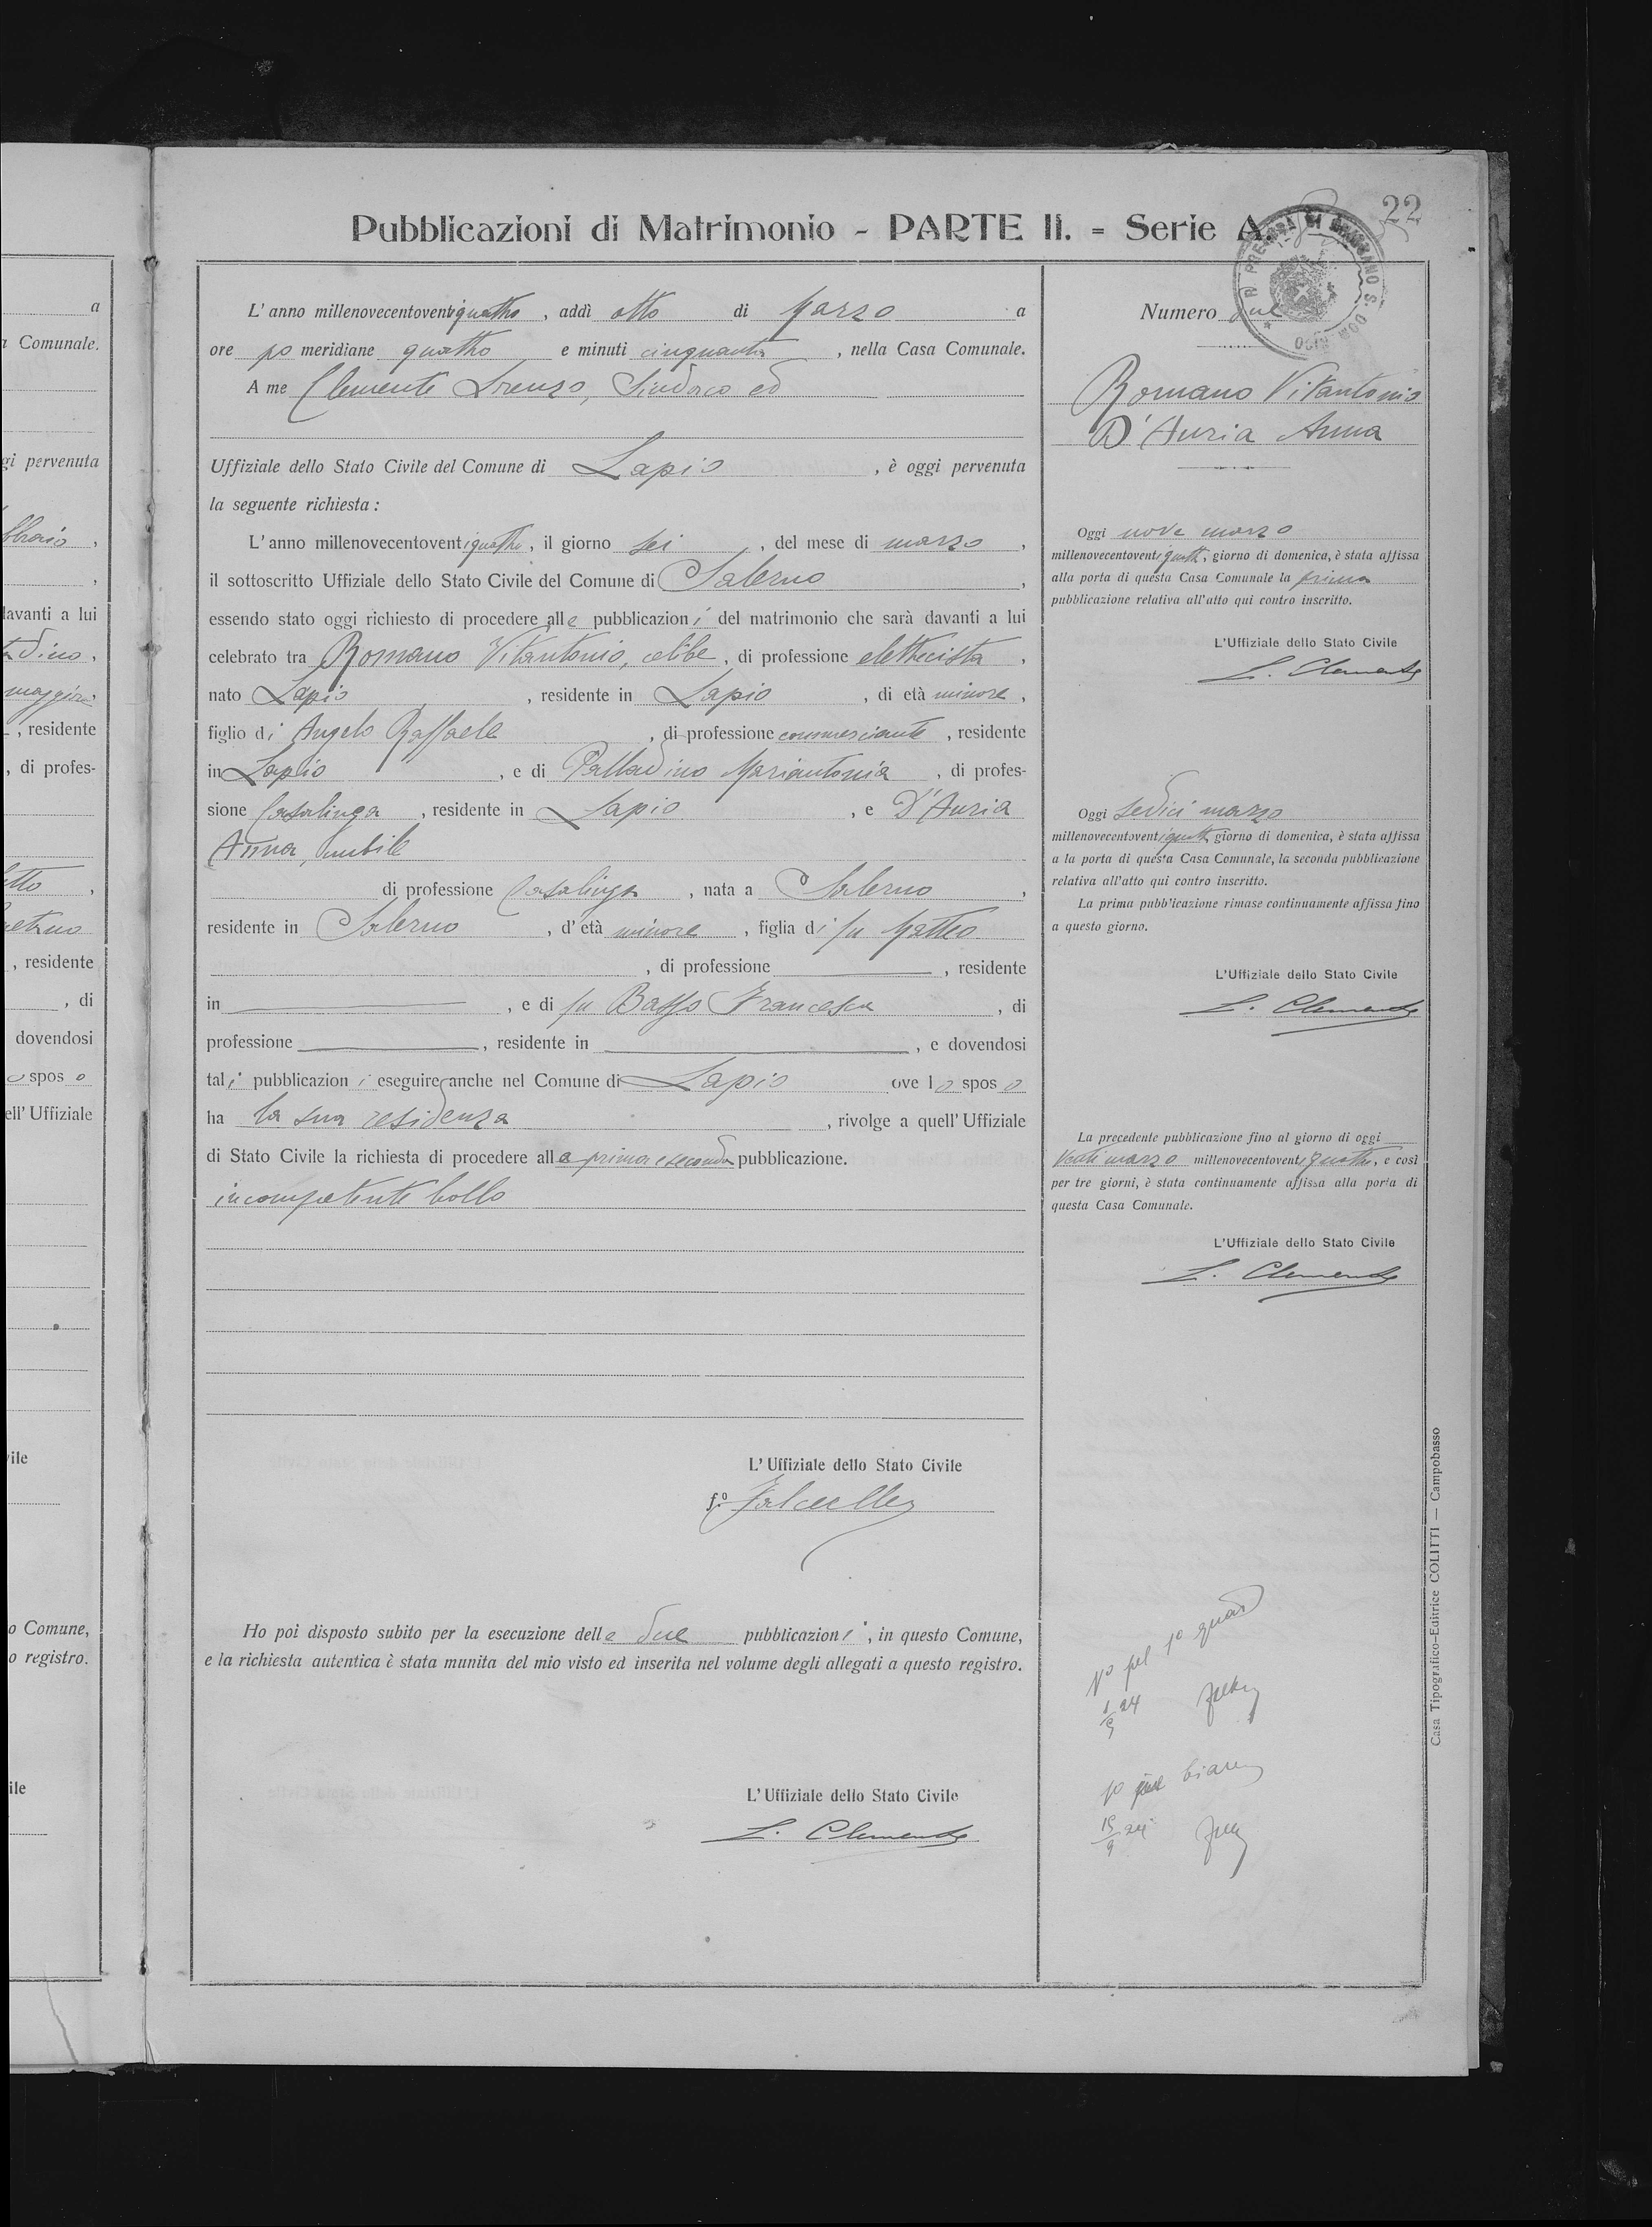 22
Pubblicazioni di Matrimonio - PARTE II. = Serie A.
L'anno millenovecentoventiquattro, addì otto di Marzo a
ore pomeridiane quattro e minuti cinquanta, nella Casa Comunale.
A me Clemente Lorenzo, Sindaco ed
Uffiziale dello Stato Civile del Comune di Lapio, è oggi pervenuta
la seguente richiesta:
L'anno millenovecentoventiquattro, il giorno sei, del mese di marzo,
il sottoscritto Uffiziale dello Stato Civile del Comune di Salerno,
essendo stato oggi richiesto di procedere alle pubblicazioni del matrimonio che sarà davanti a lui
celebrato tra Romano Vitantonio, celibe, di professione elettricista,
nato Lapio, residente in Lapio, di età minore,
figlio di Angelo Raffaele, di professione commerciante, residente
in Lapio, e di Palladino Mariantonia, di profes-
sione Casalinga, residente in Lapio, e D'Auria
Anna, nubile
di professione Casalinga, nata a Salerno,
residente in Salerno, d'età minore, figlia di fu Matteo
, di professione , residente
in , e di fu Basso Francesca, di
professione , residente in , e dovendosi
tali pubblicazioni eseguire anche nel Comune di Lapio ove lo sposo
ha la sua residenza, rivolge a quell'Uffiziale
di Stato Civile la richiesta di procedere alla prima e seconda pubblicazione.
incompetente bollo
L'Uffiziale dello Stato Civile
f.o
Ho poi disposto subito per la esecuzione delle due pubblicazioni, in questo Comune,
e la richiesta autentica è stata munita del mio visto ed inserita nel volume degli allegati a questo registro.
L'Uffiziale dello Stato Civile
L. Clemente
Numero
Romano Vitantonio
D'Auria Anna
Oggi nove marzo
millenovecentoventiquatt, giorno di domenica, è stata affissa
alla porta di questa Casa Comunale la prima
pubblicazione relativa all'atto qui contro inscritto.
L'Uffiziale dello Stato Civile
L. Clemente
Oggi sedici marzo
millenovecentoventiquatt, giorno di domenica, è stata affissa
a la porta di questa Casa Comunale, la seconda pubblicazione
relativa all'atto qui contro inscritto.
La prima pubb'icazione rimase continuamente affissa fino
a questo giorno.
L'Uffiziale dello Stato Civile
L. Clemente
La precedente pubblicazione fino al giorno di oggi
Venti marzo millenovecentoventiquattro, e così
per tre giorni, è stata continuamente affissa alla porta di
questa Casa Comunale.
L'Uffiziale dello Stato Civile
L. Clemente
Casa Tipografico-Editrice COLITTI — Campobasso
a
Comunale.
gi pervenuta
davanti a lui
, residente
, di profes-
, residente
, di
dovendosi
o sposo
ell'Uffiziale
vile
o Comune,
o registro.
ile